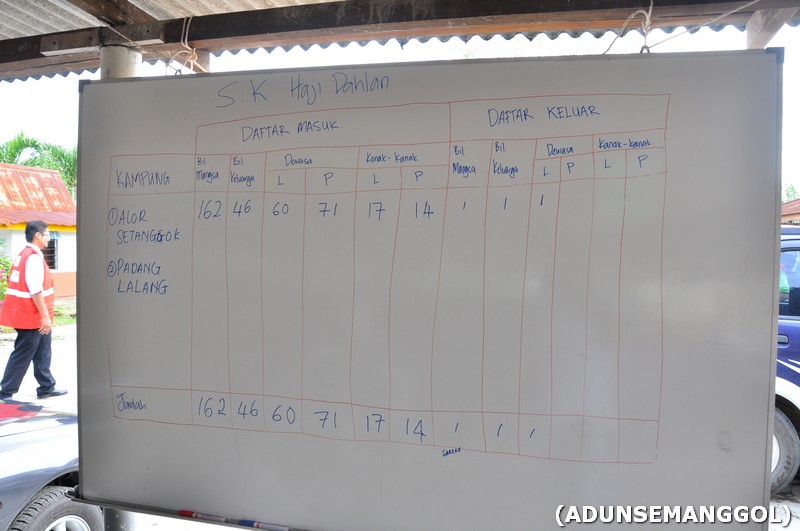 S.K Haji Dahlan
DAFTAR MASUK. DAFTAR KELUAR
KAMPUNG Bil Mangsa Bil Keluarga Dewasa Kanak-kanak Bil Mangsa Bil Keluarga Dewasa Kanak-kanak
L P L P L P L P
①ALOR SETANGGOK 162 46 60 71 17 14 1 1 1
②PADANG LALANG
Jumlah 162 46 60 71 17 14 1 1 1
(ADUNSEMANGGOL)